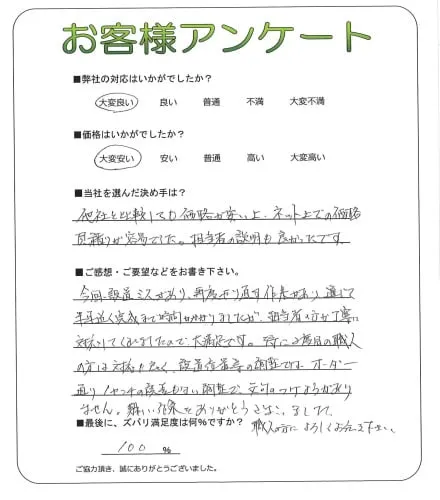 お客様アンケート
■弊社の対応はいかがでしたか?
大変良い 良い 普通 不満 大変不満
■価格はいかがでしたか?
大変安い 安い 普通 高い 大変高い
■当社を選んだ決め手は?
他社と比較しても価格が安い上、ネット上での価格
見積りが容易でした。担当者の説明も良かったです。
■ご感想・ご要望などをお書き下さい。
今回、製造ミスがあり、再度やり直す作業があり、通じて
半年近く完成まで時間がかかりましたが、担当者の方が丁寧に
対応してくれましたので、大満足です。特に2度目の職人
の方は対応も良く、製造後の調整ですが、オーダー
通り1センチの誤差もない調整で、文句のつけようがあり
ません。難しい作業をありがとうございました。
■最後に、ズバリ満足度は何%ですか?
職人の方によろしくお伝え下さい。
100 %
ご協力頂き、誠にありがとうございました。